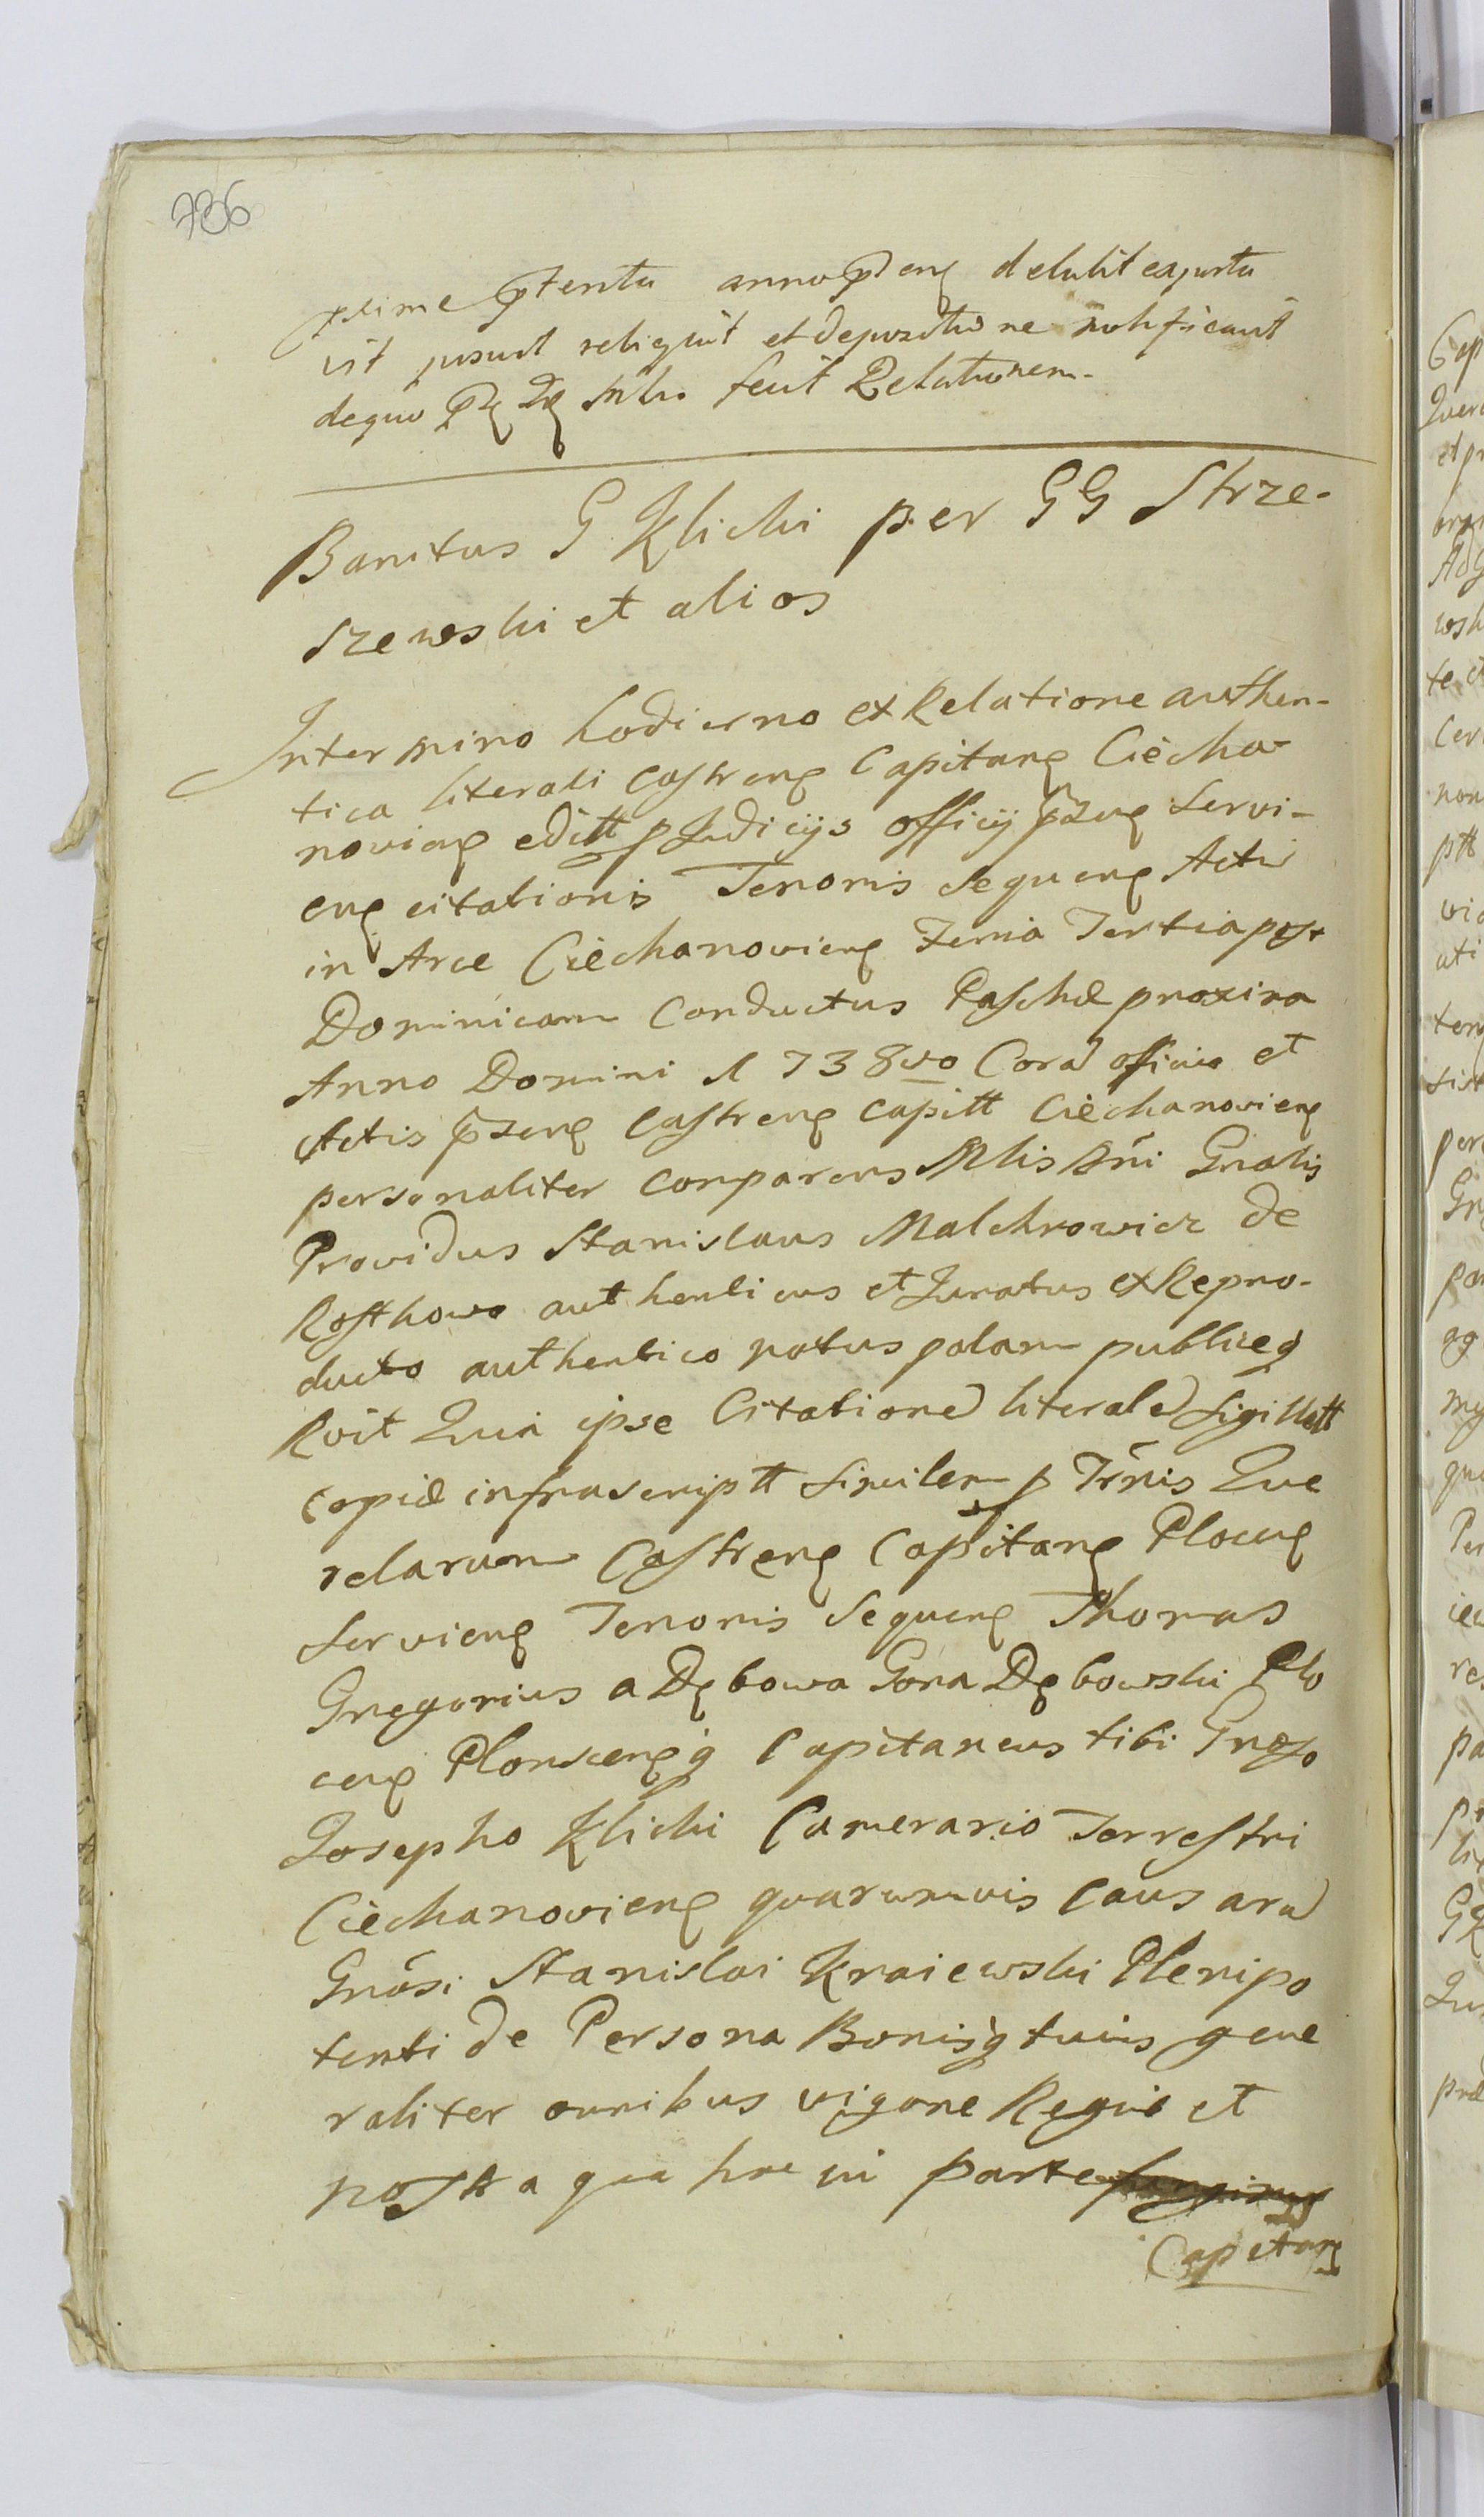 786
anno
posuit reliquit et depositione notificauit
dequo fecit Relationem.
Banitus G Klicki per GG Strze-
szewski et alios
In termino hodierno ex Relatione authen-
tica literali Castreng Capitang Ciecha-
novieng editt p Judicijs officij pzeng servi-
eng citationis Tenoris sequeng Actu
in Arce Ciechanovieng Feria Tertia post
Dominicam Conductus Paschæ proxima
Anno Domini 1738vo Cora officio et
Actis pzeng Castreng Capitt Ciechanovieng
personaliter comparens Mlis Rni Gnalis
Providus Stanislaus Malchrowicz de
Rosthowo authenticus et Juratus ex Repro-
ducto authentico notus palam publiceq
Rvit Quia ipse Citatione literale Sigillatt
copiæ infrascriptt similem p Trnis Que
relarum Castreng Capitang Ploceng
servieng Tenoris sequeng Thomas
Gregorius a Dębowa Gora Dębowski Plo
ceng Plonsceng q Capitaneus tibi Gnoso
Josepho Klicki Camerario Terrestri
Ciechanovieng quarumvis causara
Gnosi Stanislai Kraiewski Plenipo
tenti de Persona Bonisq tuis gene
raliter omnibus vigore Regia et
nostra qua hac in parte
Capitang